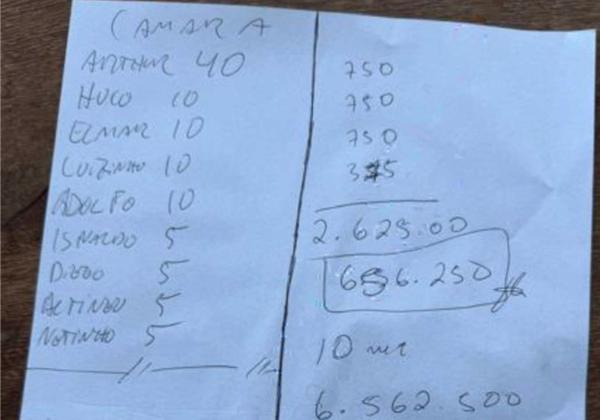 CAMARA
ARTHUR 40
HUGO 10
ELMAR 10
LUIZINHO 10
ADOLFO 10
ISNALDO 5
DIOGO 5
5
NETINHO 5
750
750
750
375
2.625.00
656.250
10
6.562.500